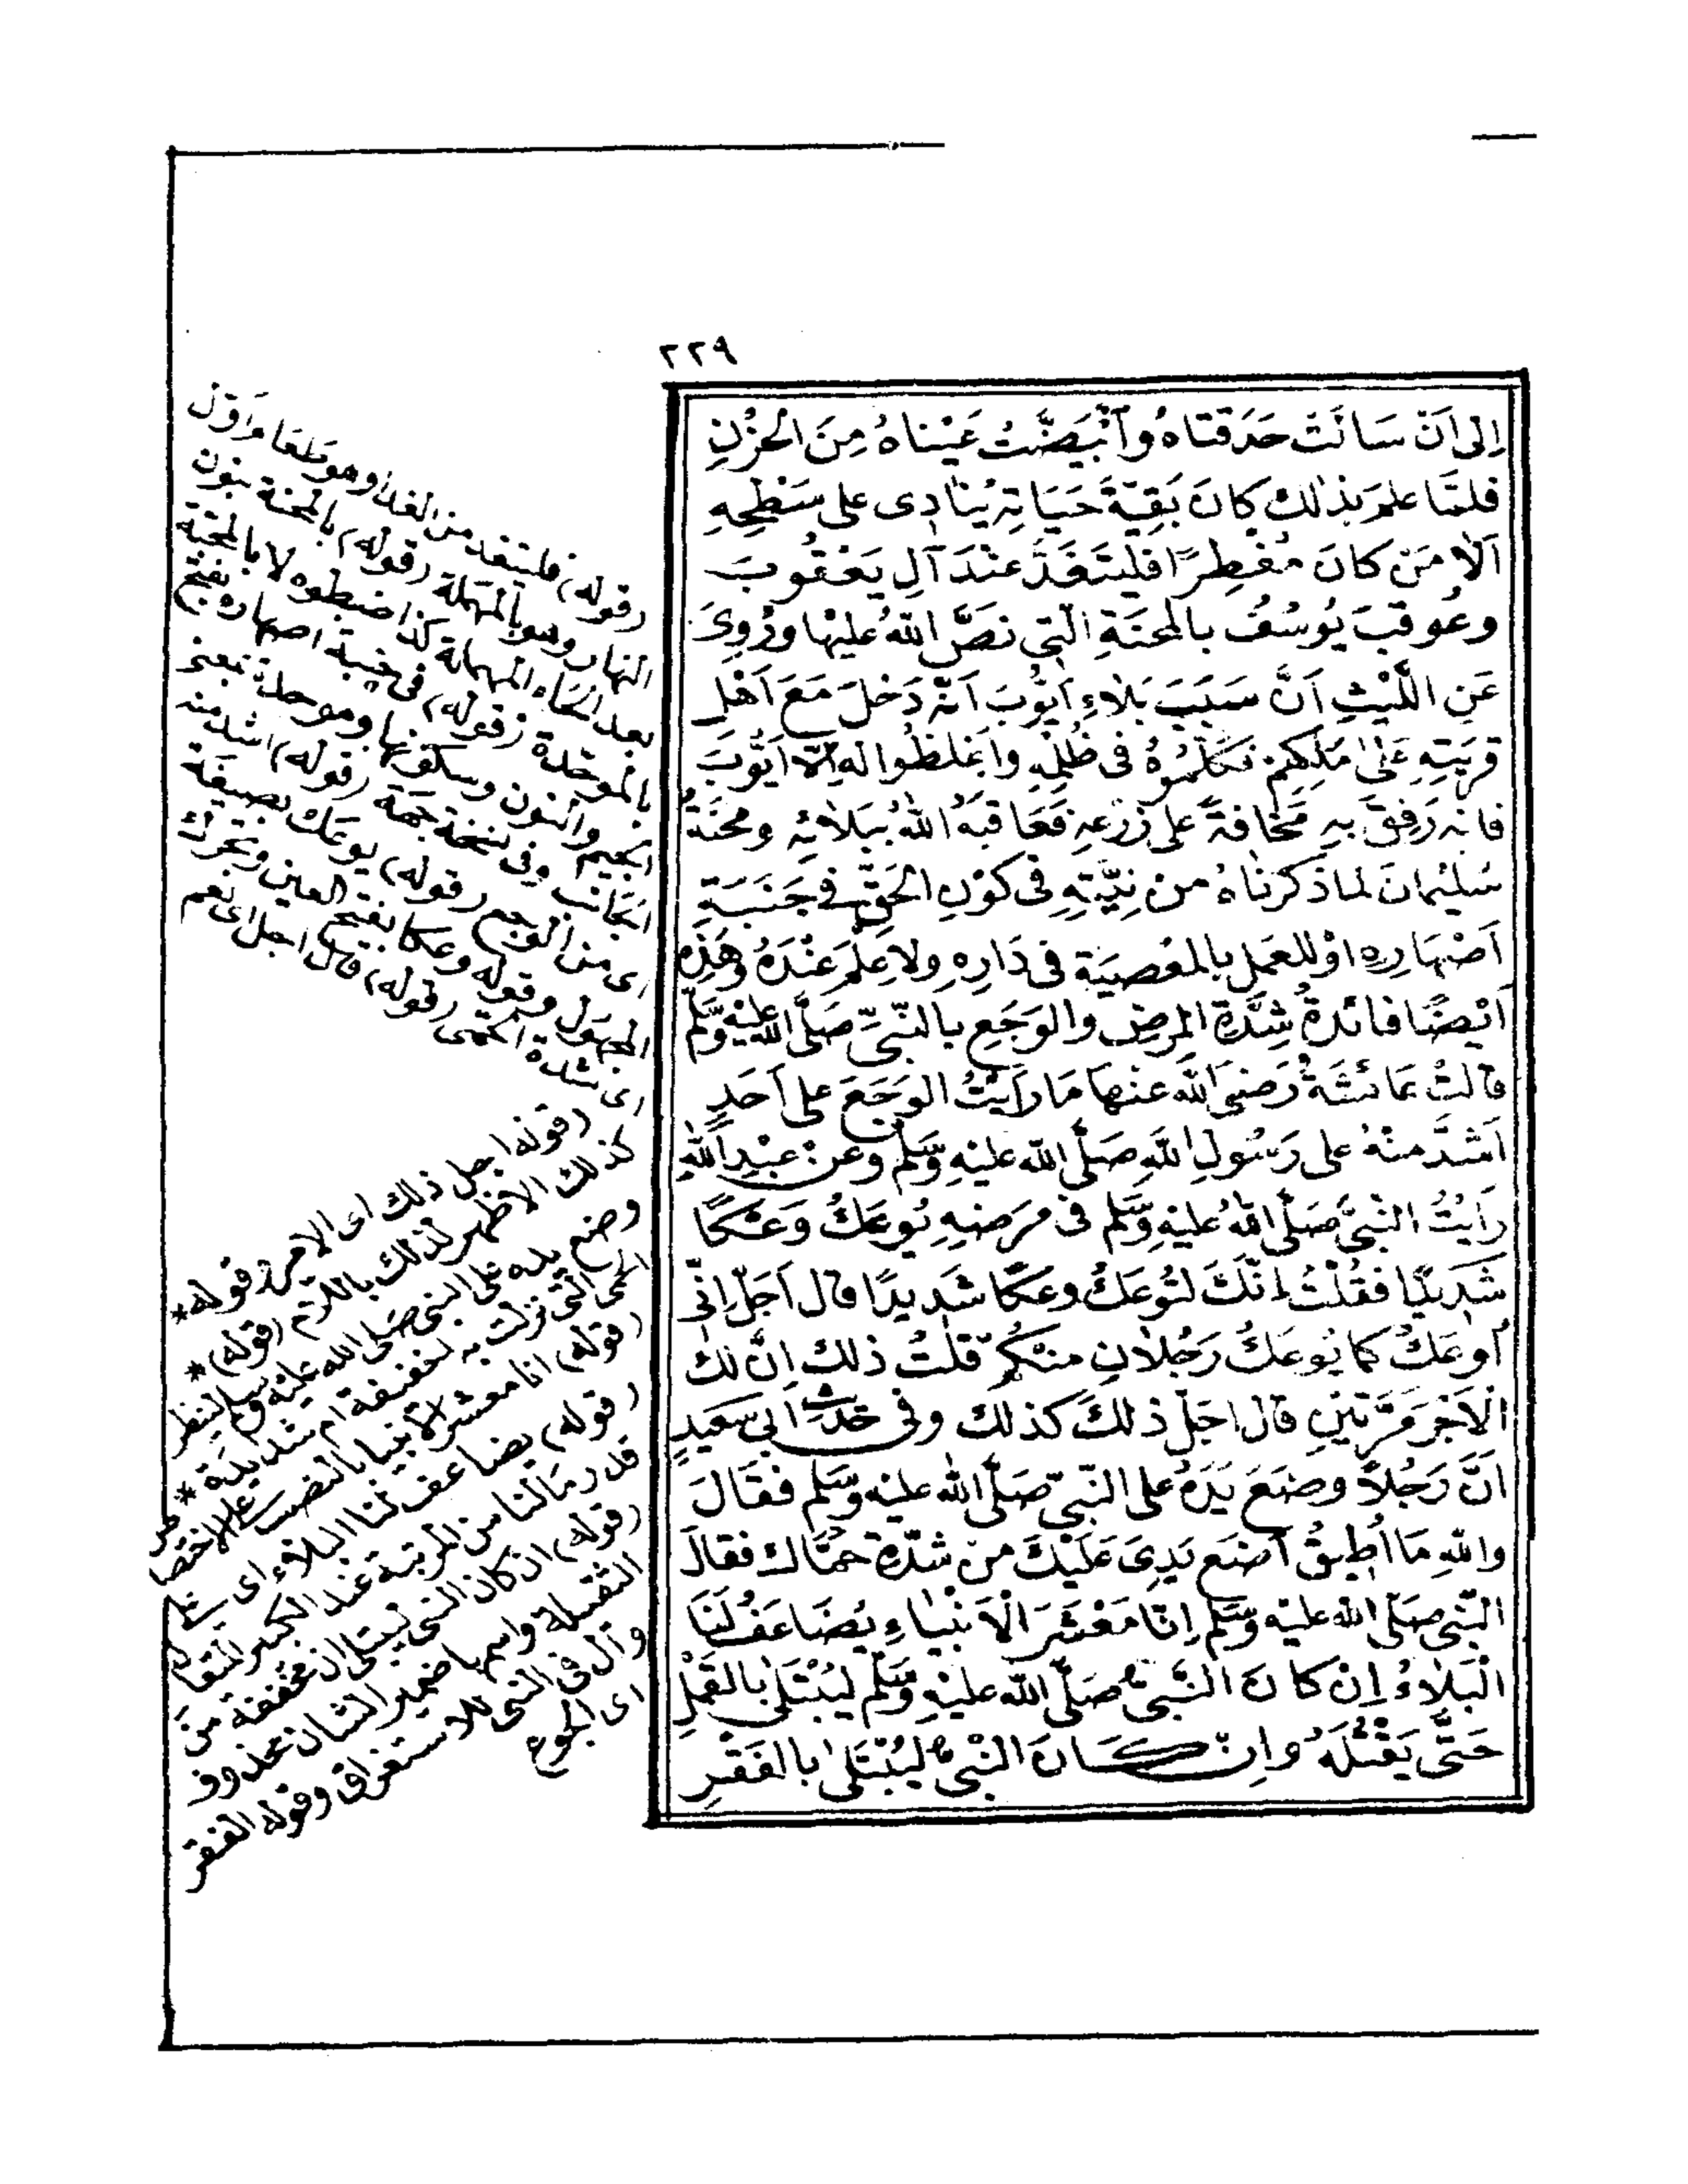 ٢٢٩
اِلٰى اَنْ سَالَتْ حَدَقَتَاهُ وَاَبْيَضَّتْ عَيْنَاهُ مِنَ الْحُزْنِ
فَلَمَّا عَلِمَ بِذٰلِكَ كَانَ بَقِيَّةَ حَيَاتِهِ يُنَادِى عَلٰى سَطْحِهِ
اَلَا مَنْ كَانَ مُفْطِرًا فَلْيَتَغَدَّ عِنْدَ آلِ يَعْقُوبَ
وَعُوقِبَ يُوسُفُ بِالْمِحْنَةِ الَّتِى نَصَّ اللّٰهُ عَلَيْهَا وَرُوِىَ
عَنِ اللَّيْثِ اَنَّ سَبَبَ بَلَاءِ اَيُّوبَ اَنَّهُ دَخَلَ مَعَ اَهْلِ
قَرْيَتِهِ عَلٰى مَلِكِهِمْ فَكَلَّمُوهُ فِى ظُلْمِهِ وَاَغْلَظُوا لَهُ اِلَّا اَيُّوبَ
فَاِنَّهُ رَفَقَ بِهِ مَخَافَةً عَلٰى زَرْعِهِ فَعَاقَبَهُ اللّٰهُ بِبَلَائِهِ وَمِحْنَةُ
سُلَيْمَانَ لِمَا ذَكَرْنَاهُ مِنْ نِيَّتِهِ فِى كَوْنِ الْحَقِّ فِى جَنَبَةِ
اَصْهَارِهِ اَوْ لِلْعَمَلِ بِالْمَعْصِيَةِ فِى دَارِهِ وَلَا عِلْمَ عِنْدَهُ وَهٰذِهِ
اَيْضًا فَائِدَةُ شِدَّةِ الْمَرَضِ وَالْوَجَعِ بِالنَّبِىِّ صَلَّى اللّٰهُ عَلَيْهِ وَسَلَّمَ
قَالَتْ عَائِشَةُ رَضِىَ اللّٰهُ عَنْهَا مَا رَاَيْتُ الْوَجَعَ عَلٰى اَحَدٍ
اَشَدَّ مِنْهُ عَلٰى رَسُولِ اللّٰهِ صَلَّى اللّٰهُ عَلَيْهِ وَسَلَّمَ وَعَنْ عَبْدِ اللّٰهِ
رَاَيْتُ النَّبِىَّ صَلَّى اللّٰهُ عَلَيْهِ وَسَلَّمَ فِى مَرَضِهِ يُوعَكُ وَعْكًا
شَدِيدًا فَقُلْتُ اِنَّكَ لَتُوعَكُ وَعْكًا شَدِيدًا قَالَ اَجَلْ اِنِّى
اُوعَكُ كَمَا يُوعَكُ رَجُلَانِ مِنْكُمْ قُلْتُ ذٰلِكَ اَنَّ لَكَ
الْاَجْرَ مَرَّتَيْنِ قَالَ اَجَلْ ذٰلِكَ كَذٰلِكَ وَفِى حَدِيثِ اَبِى سَعِيدٍ
اَنَّ رَجُلًا وَضَعَ يَدَهُ عَلَى النَّبِىِّ صَلَّى اللّٰهُ عَلَيْهِ وَسَلَّمَ فَقَالَ
وَاللّٰهِ مَا اُطِيقُ اَضَعُ يَدِىَ عَلَيْكَ مِنْ شِدَّةِ حُمَّاكَ فَقَالَ
النَّبِىُّ صَلَّى اللّٰهُ عَلَيْهِ وَسَلَّمَ اِنَّا مَعْشَرَ الْاَنْبِيَاءِ يُضَاعَفُ لَنَا
الْبَلَاءُ اِنْ كَانَ النَّبِىُّ صَلَّى اللّٰهُ عَلَيْهِ وَسَلَّمَ لَيُبْتَلٰى بِالْقَمْلِ
حَتَّى يَقْتُلَهُ وَاِنْ كَانَ النَّبِىُّ لَيُبْتَلٰى بِالْفَقْرِ
(قوله) فليتغد من الغدا وهو طعام اول
النهار وهو بالمهملة (قوله) بالمحنة بنون
بعد الحاء المهملة كذا ضبطوه لا بالمحبة
بالموحدة (قوله) فى جنبة اصهاره بفتح
الجيم والنون وسكونها وموحدة بمعنى
الجانب وفى نسخة جهة (قوله) اشد منه
اى من الوجع (قوله) يوعك بصيغة
المجهول وقوله وعكا بفتح العين وتحرك
اى شدة الحمى (قوله) قال اجل اى نعم
(قوله) اجل ذلك اى الامر وقوله *
كذلك الاظهر لذلك باللام (قوله) *
وضع يده على النبى صلى الله عليه وسلم لينظر
الحمى التى نزلت به خفيفة ام شديدة *
(قوله) انا معشر الانبيا بالنصب على الاختصاص
(قوله) يضاعف لنا البلاء اى على
قدر مالنا من المرتبة عند الكبير المتعال
(قوله) ان كان النبى ليبتلى ان مخففة من
الثقيلة واسمها ضمير الشان محذوف
وال فى النبى للاستغراق وقوله الفقر
اى الجوع